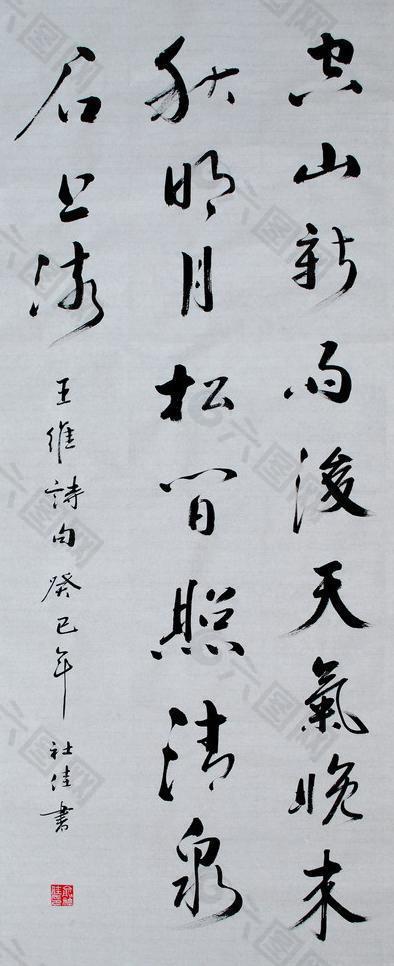 空山新雨後天氣晚来
秋明月松間照清泉
石上流
王維詩句癸巳年社佳書
六图网